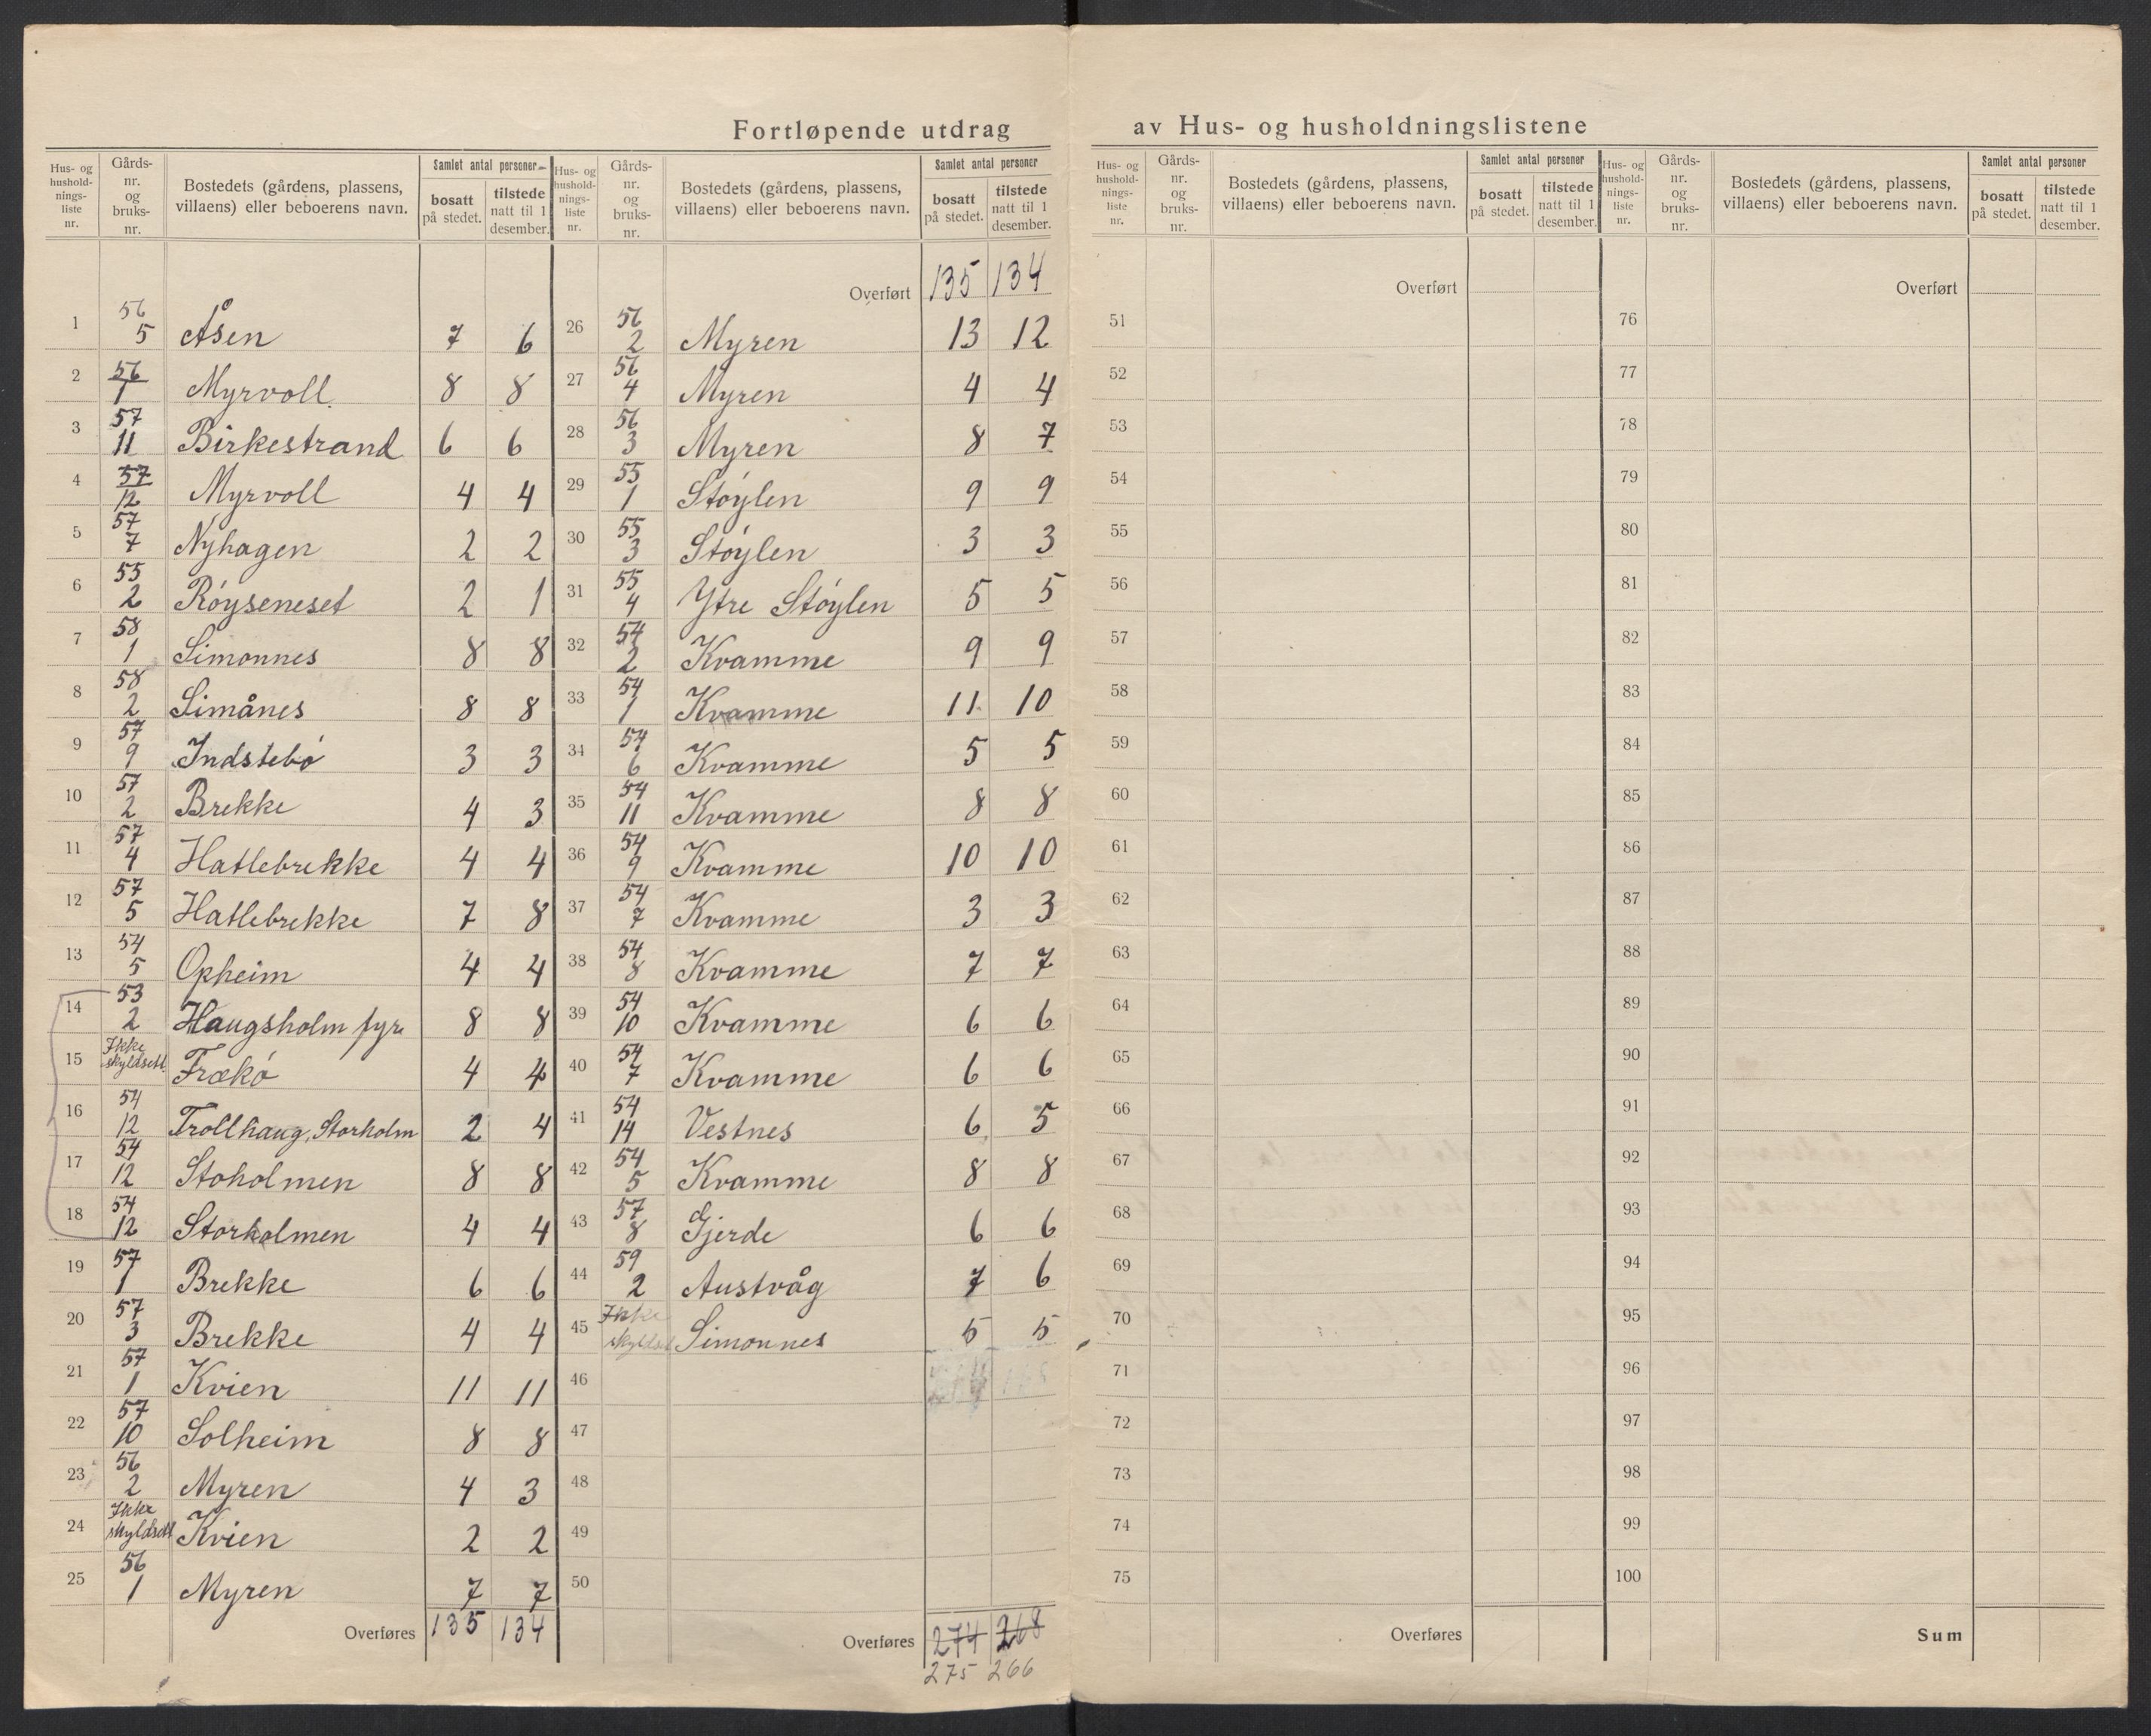 Fortløpende utdrag av Hus- og husholdningslistene
Hus- og husholdnings-liste nr. | Gårds-nr. og bruks-nr. | Bostedets (gårdens, plassens, villaens) eller beboerens navn. | Samlet antal personer bosatt på stedet. | tilstede natt til 1 desember.
1 56 5 Åsen 7 6
2 56 1 Myrvoll 8 8
3 57 11 Birkestrand 6 6
4 57 12 Myrvoll 4 4
5 57 7 Nyhagen 2 2
6 55 2 Róyseneset 2 1
7 58 1 Simonnes 8 8
8 58 2 Simånes 8 8
9 57 9 Indstebó 3 3
10 57 2 Brekke 4 3
11 57 4 Hatlebrekke 4 4
12 57 5 Hatlebrekke 7 8
13 54 5 Opheim 4 4
14 53 2 Haugsholm fyr 8 8
15 Ikke skyldsett Frækó 4 4
16 54 12 Trollhaug, Storholm 2 4
17 54 12 Stoholmen 8 8
18 54 12 Storholmen 4 4
19 57 1 Brekke 6 6
20 57 3 Brekke 4 4
21 57 1 Kvien 11 11
22 57 10 Solheim 8 8
23 56 2 Myren 4 3
24 Ikke skyldsett Kvien 2 2
25 56 1 Myren 7 7
Overføres 135 134
Hus- og husholdnings-liste nr. | Gårds-nr. og bruks-nr. | Bostedets (gårdens, plassens, villaens) eller beboerens navn. | Samlet antal personer bosatt på stedet. | tilstede natt til 1 desember.
Overført 135 134
26 56 2 Myren 13 12
27 56 4 Myren 4 4
28 56 3 Myren 8 7
29 55 1 Stóylen 9 9
30 55 3 Stóylen 3 3
31 55 4 Ytre Stóylen 5 5
32 54 2 Kvamme 9 9
33 54 1 Kvamme 11 10
34 54 6 Kvamme 5 5
35 54 11 Kvamme 8 8
36 54 9 Kvamme 10 10
37 54 7 Kvamme 3 3
38 54 8 Kvamme 7 7
39 54 10 Kvamme 6 6
40 54 7 Kvamme 6 6
41 54 14 Vestnes 6 5
42 54 5 Kvamme 8 8
43 57 8 Gjerde 6 6
44 59 2 Austvåg 7 6
45 Ikke skyldset Simonnes 5 5
46
47
48
49
50
Overføres 274 268
275 266
Hus- og husholdnings-liste nr. | Gårds-nr. og bruks-nr. | Bostedets (gårdens, plassens, villaens) eller beboerens navn. | Samlet antal personer bosatt på stedet. | tilstede natt til 1 desember.
Overført
51
52
53
54
55
56
57
58
59
60
61
62
63
64
65
66
67
68
69
70
71
72
73
74
75
Overføres
Hus- og husholdnings-liste nr. | Gårds-nr. og bruks-nr. | Bostedets (gårdens, plassens, villaens) eller beboerens navn. | Samlet antal personer bosatt på stedet. | tilstede natt til 1 desember.
Overført
76
77
78
79
80
81
82
83
84
85
86
87
88
89
90
91
92
93
94
95
96
97
98
99
100
Sum